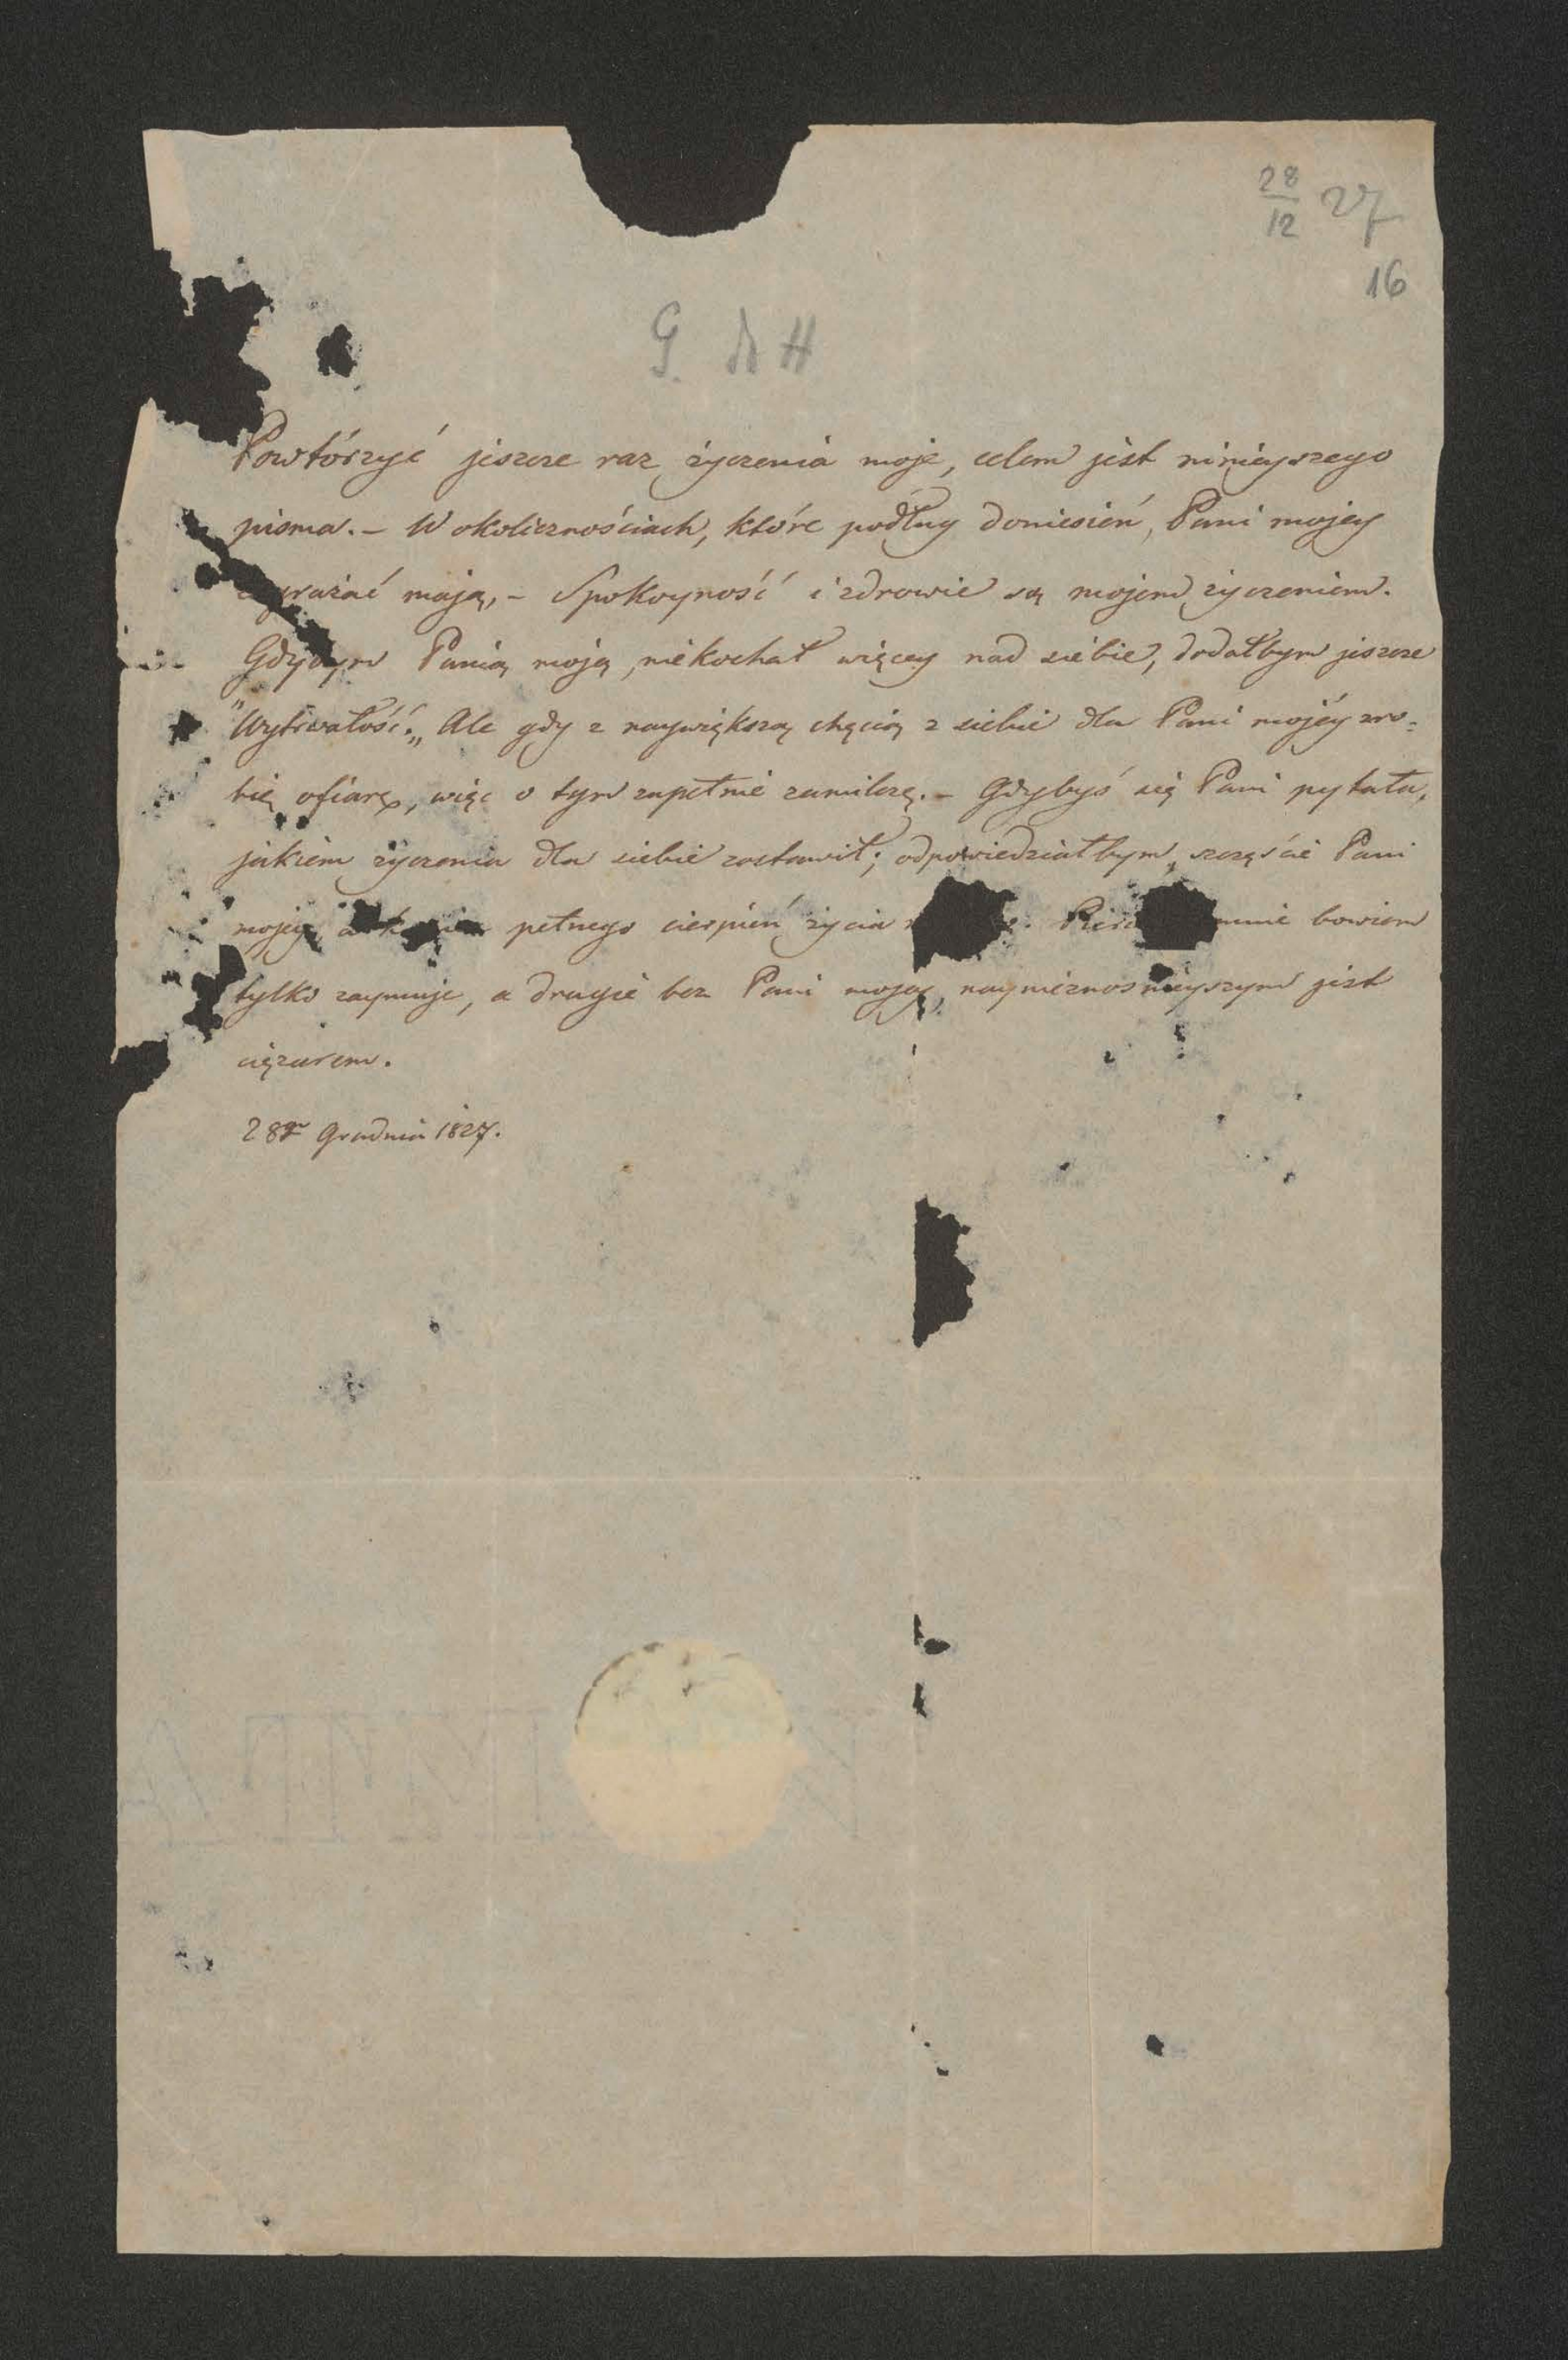 28
12
27
16
G. H
Powtórzyć jeszcze raz życzenia moje, celem jest niniejszego
pisma. – W okolicznościach, które podług doniesień, Pani mojey
mają, – Spokoyność i zdrowie są mojem życzeniem.
Gdybym Panią moją niekochał więcey nad siebie, dodałbym jeszcze
"Wytrwałość„ Ale gdy z naywiększą chęcią z siebie dla Pani mojéy zro-
bię ofiarę, więc o tym zupełnie zamilczę. – Gdybyś się Pani pytała,
jakiem życzenia dla siebie zostawił; odpowiedziałbym, szczęście Pani
mojey, a pełnego cierpień życia mnie bowiem
tylko zaymuje, a drugie bez Pani mojey, naynieznośnieyszym jest
ciężarem.
28go Grudnia 1827.